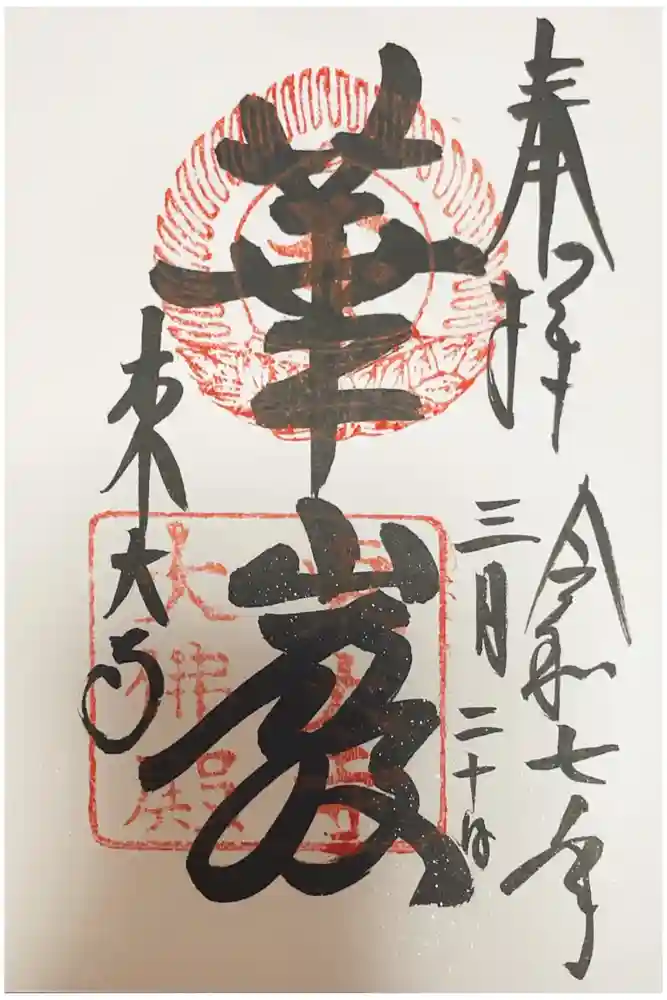 奉拝
令和七年
三月二十日
華厳
東大寺
大佛殿